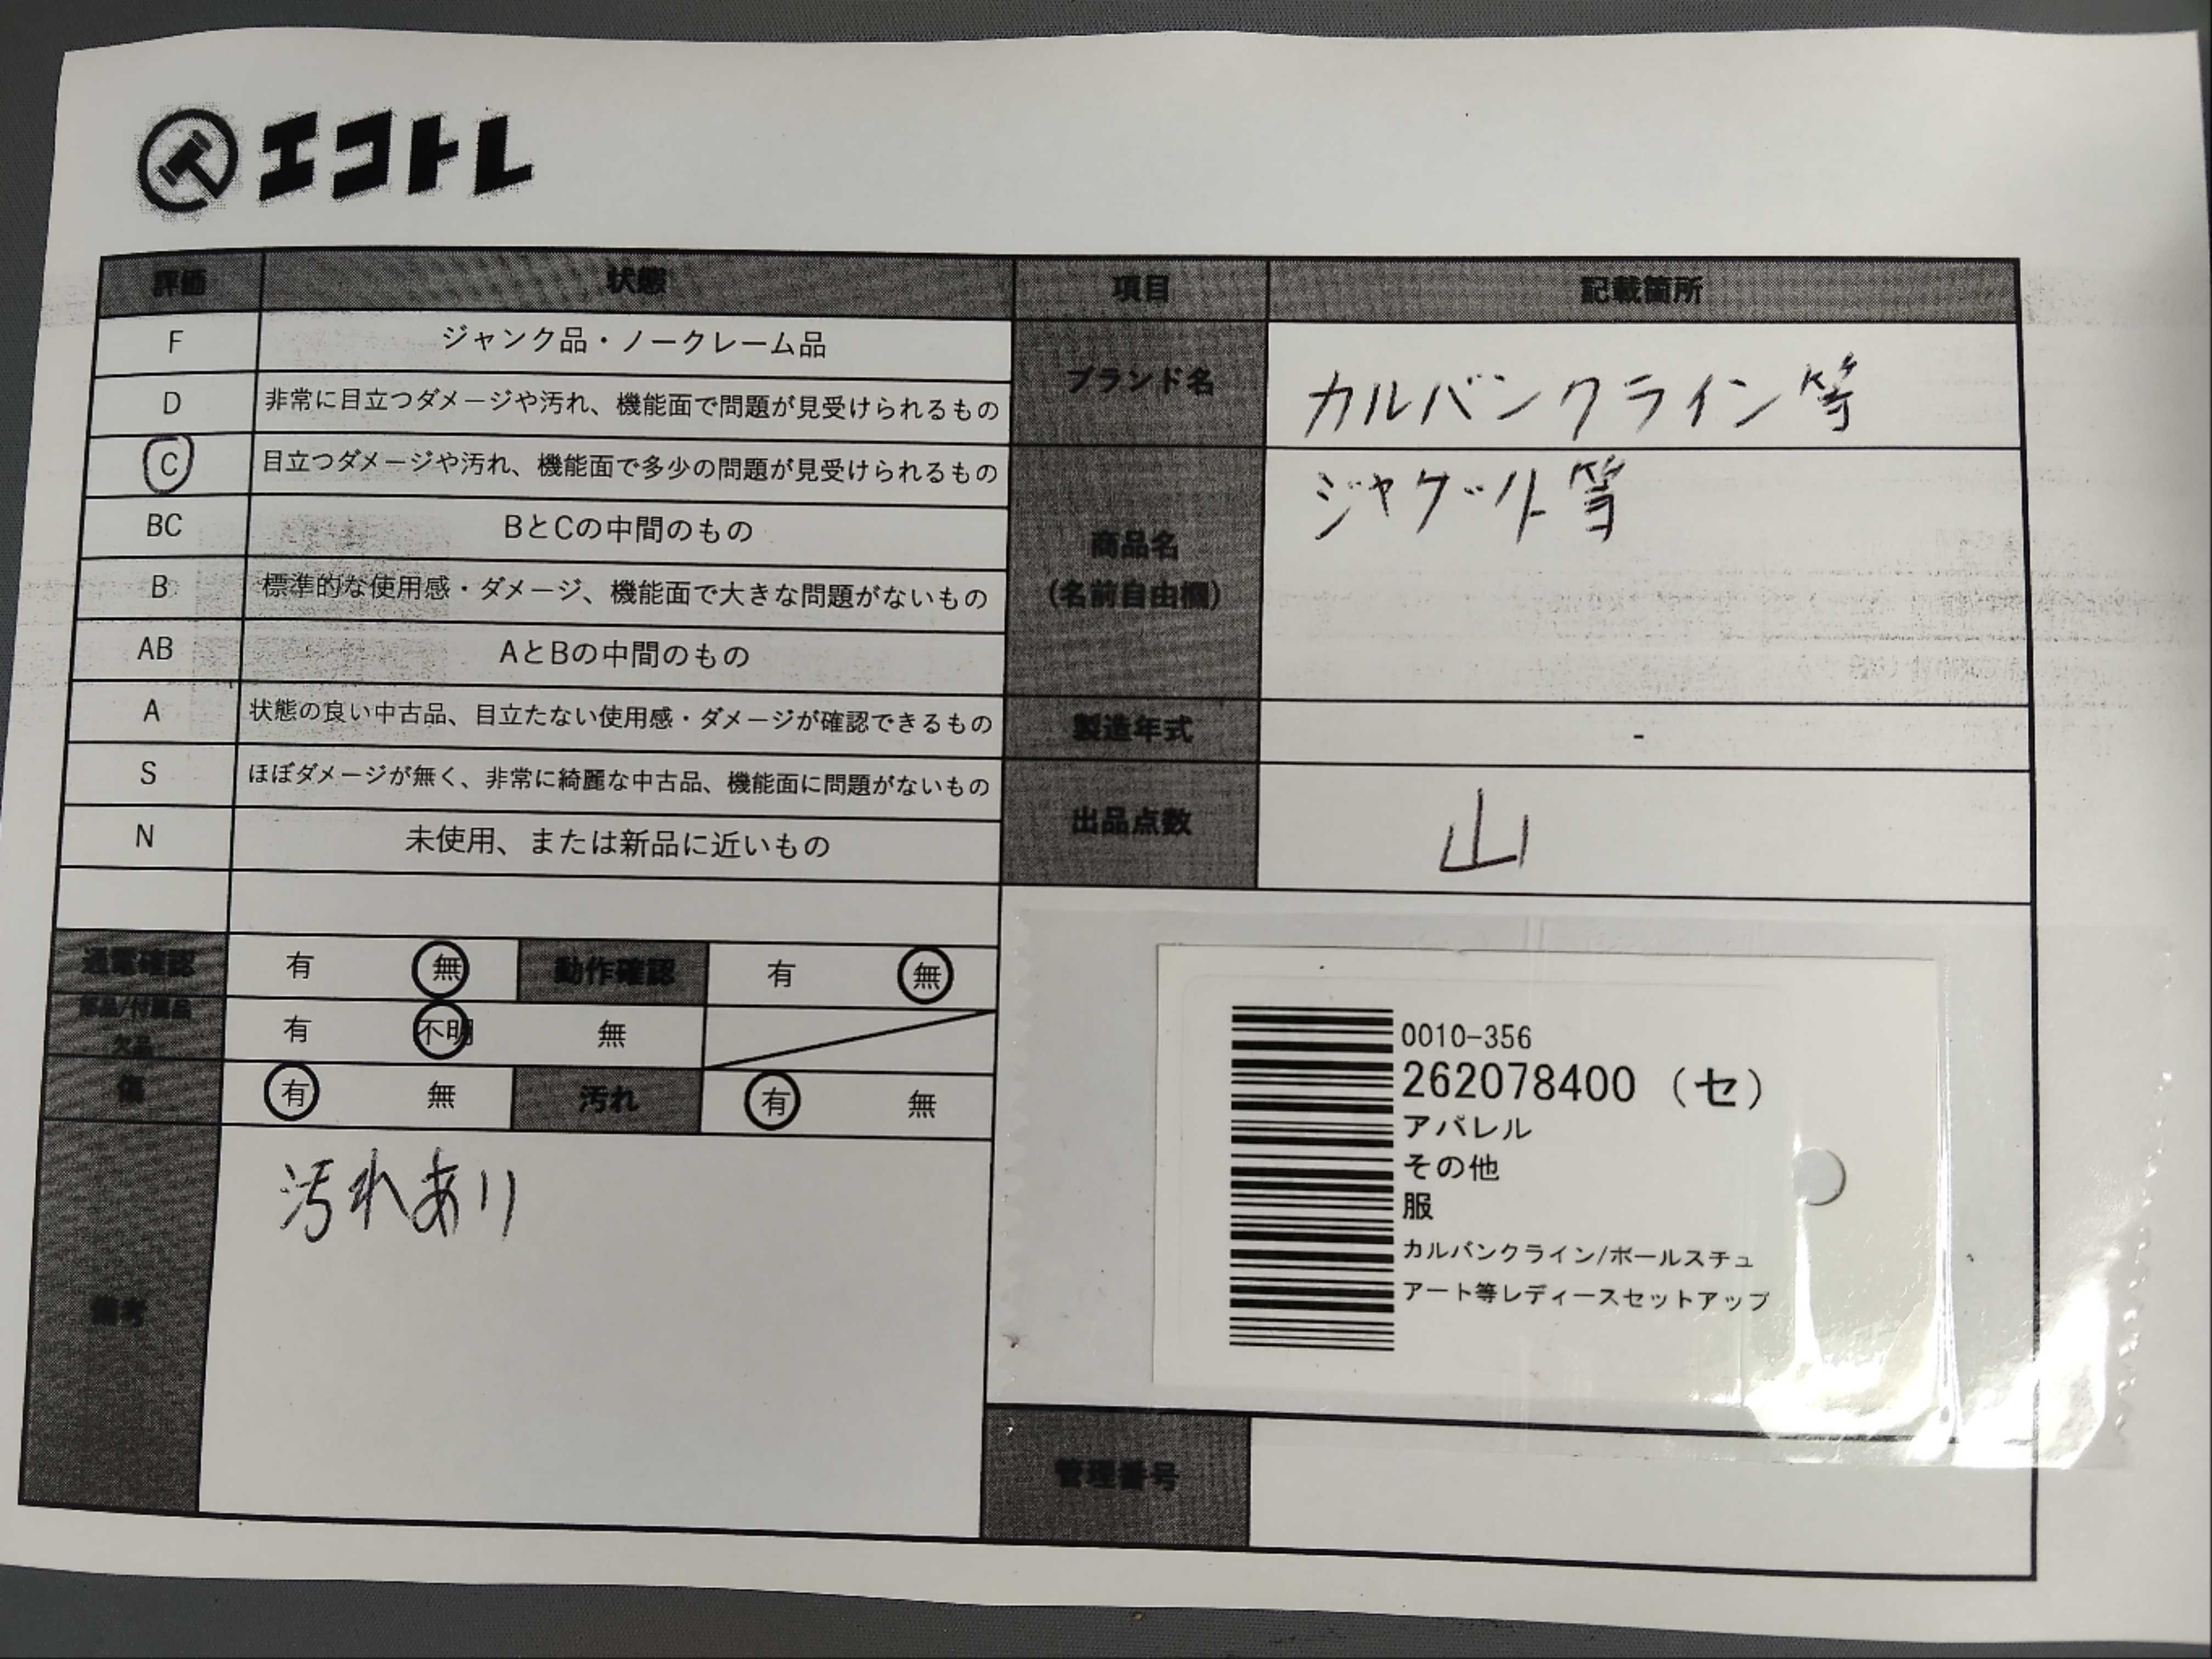 エコトレ
評価 状態 項目 記載箇所
F ジャンク品・ノークレーム品
D 非常に目立つダメージや汚れ、機能面で問題が見受けられるもの
C 目立つダメージや汚れ、機能面で多少の問題が見受けられるもの
BC BとCの中間のもの
B 標準的な使用感・ダメージ、機能面で大きな問題がないもの
AB AとBの中間のもの
A 状態の良い中古品、目立たない使用感・ダメージが確認できるもの
S ほぼダメージが無く、非常に綺麗な中古品、機能面に問題がないもの
N 未使用、または新品に近いもの
ブランド名 カルバンクライン等
商品名 ジャケット等
(名前自由欄)
製造年式 -
出品点数 山
通電確認 有 無 動作確認 有 無
部品/付属品
欠品 有 不明 無
傷 有 無 汚れ 有 無
備考 汚れあり
0010-356
262078400 (セ)
アパレル
その他
服
カルバンクライン/ポールスチュ
アート等レディースセットアップ
管理番号